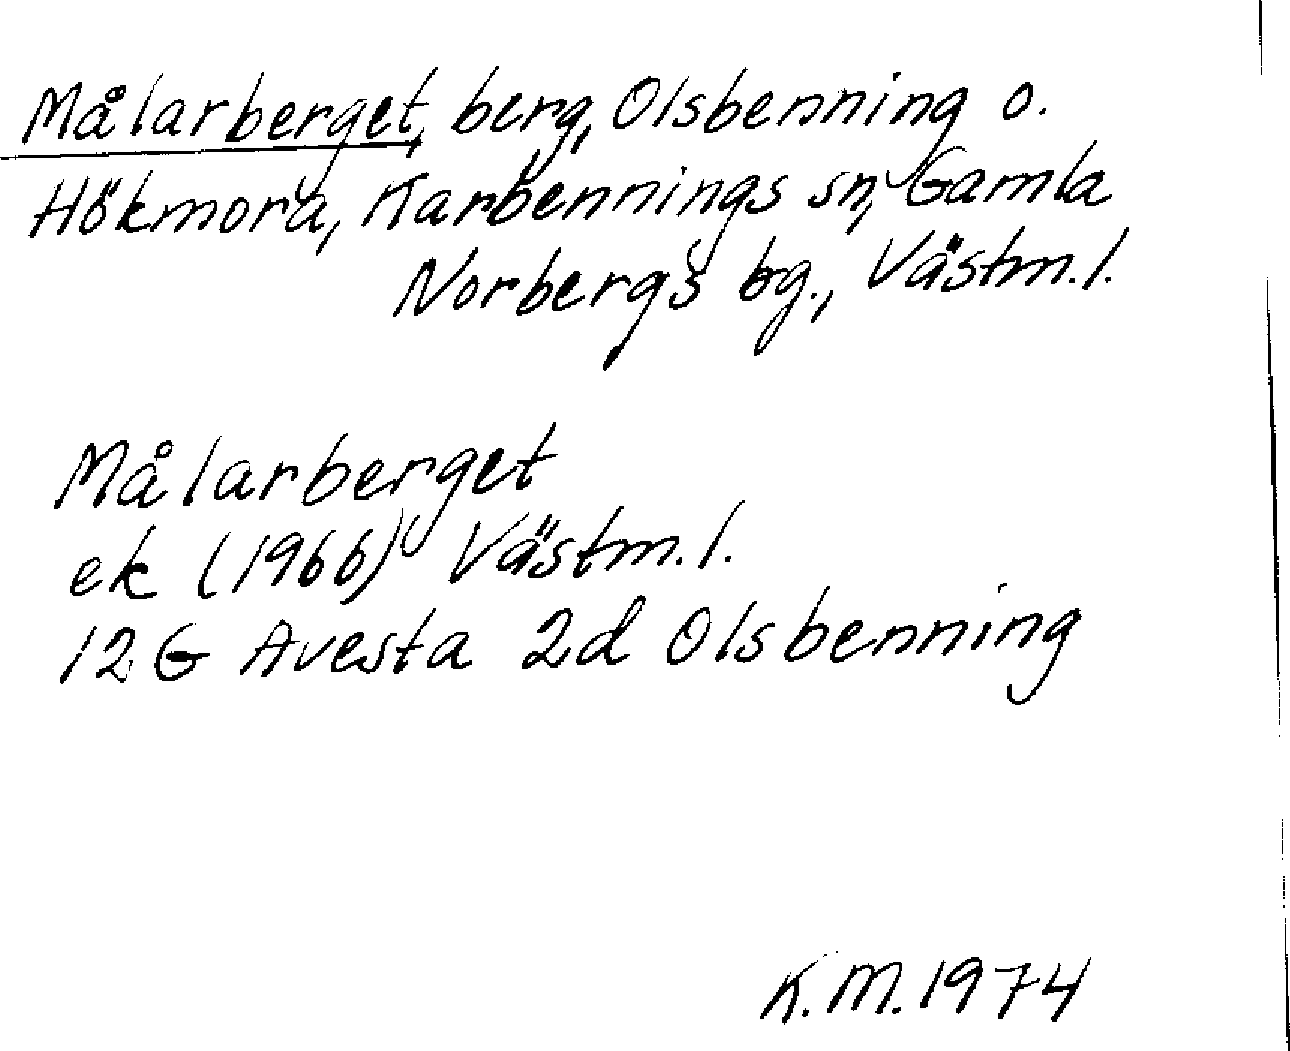 Målarberget, berg, Olsbenning o.
Hökmora, Karbennings sn, Gamla
Norbergs bg., Västm.l.
Målarberget
ek (1966) Västm.l.
12 G Avesta 2d Olsbenning
K.M. 1974